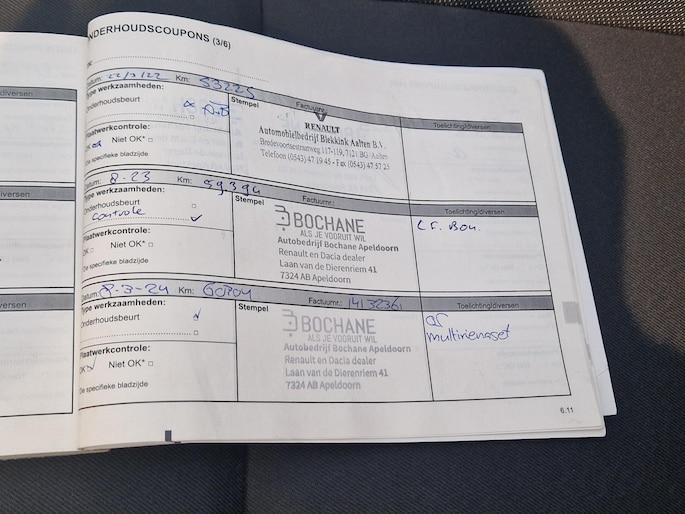 NDERHOUDSCOUPONS (3/6)
Datum: 22/3/22 Km: 53225
Type werkzaamheden:
Stempel
Factuurnr.
Toelichting/diversen
Onderhoudsbeurt
A+B
RENAULT
Automobielbedrijf Blekkink Aalten B.V.
Bredevoortsestraatweg 117-119, 7121 BG Aalten
Telefoon (0543) 47 19 45 - Fax (0543) 47 57 25
Plaatwerkcontrole:
OK Niet OK*
Zie specifieke bladzijde
Datum: 8-23 Km: 59394
Type werkzaamheden:
Stempel
Factuurnr.:
Toelichting/diversen
Onderhoudsbeurt
Controle
BOCHANE
ALS JE VOORUIT WIL
Autobedrijf Bochane Apeldoorn
Renault en Dacia dealer
Laan van de Dierenriem 41
7324 AB Apeldoorn
Plaatwerkcontrole:
OK Niet OK*
Zie specifieke bladzijde
Datum: 8-3-24 Km:
Factuurnr.: 14132361
Toelichting/diversen
Type werkzaamheden:
Stempel
Onderhoudsbeurt
BOCHANE
ALS JE VOORUIT WIL
Autobedrijf Bochane Apeldoorn
Renault en Dacia dealer
Laan van de Dierenriem 41
7324 AB Apeldoorn
multiriemset
Plaatwerkcontrole:
OK Niet OK*
Zie specifieke bladzijde
6.11
diversen
diversen
diversen